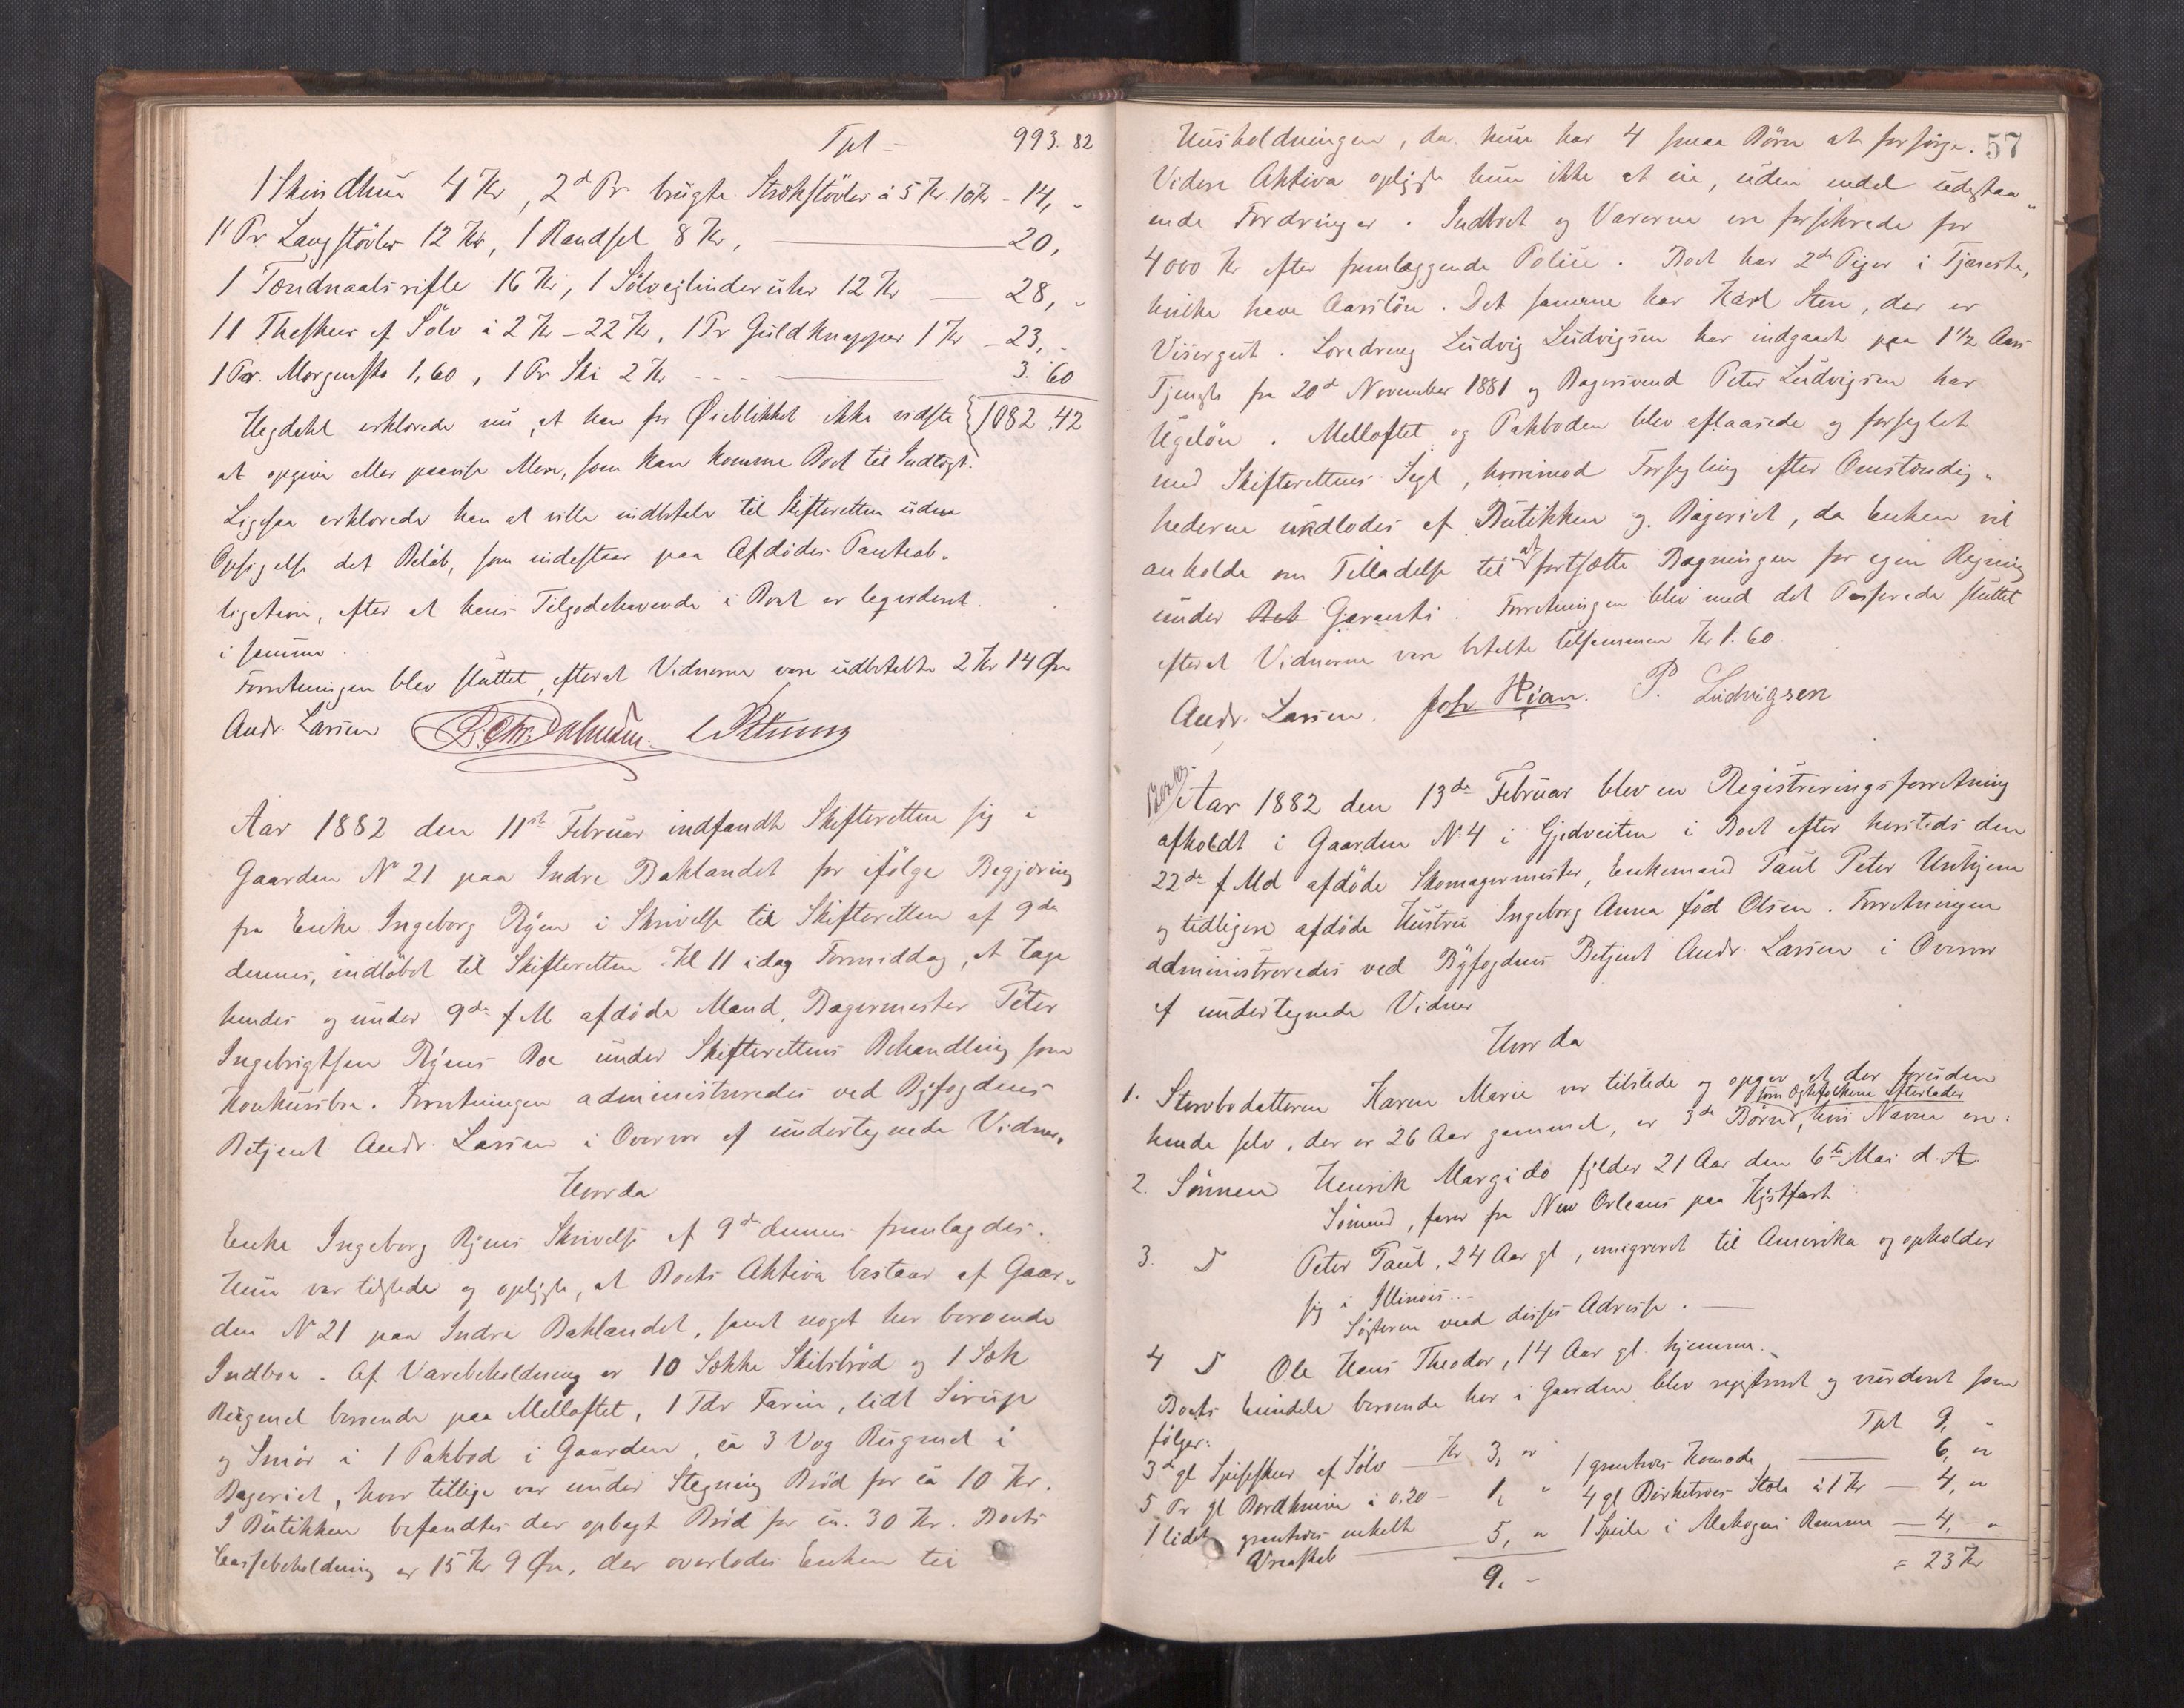 Tpt – 993. 82
1 Skindhue 4 Kr, 2d Pr brugte Strokstövler à 5 Kr. 10 Kr – 14, „
1 Pr Langstövler 12 Kr, 1 Randsel 8 Kr, — 20,
1 Tændnaalsrifle 16 Kr, 1 Sölvcylinderuhr 12 Kr — 28, „
11 Theskeer af Sölv à 2 Kr – 22 Kr, 1 Pr Guldknapper 1 Kr – 23, „
1 Par. Morgensko 1,60, 1 Pr Ski 2 Kr — 3. 60
Hegdahl erklærede nu, at han for Øieblikket ikke vidste 1082.42
at opgive eller paavise Mere, som kan komme Boet til Indtægt.
Ligesaa erklærede han at ville indbetale til Skifteretten uden
Opsigelse det Belöb, som indestaar paa Afdödes Panteob-
ligation, efter at hans Tilgodehavende i Boet er leqvideret
i samme.
Forretningen blev sluttet, efterat Vidnerne vare udbetalte 2 Kr 14 Øre
Andr. Larsen
Aar 1882 den 11te Februar indfandt Skifteretten sig i
Gaarden No 21 paa Indre Baklandet for ifölge Begjæring
fra Enke Ingeborg Ryen i Skrivelse til Skifteretten af 9de
dennes, indlöbet til Skifteretten Kl 11 idag Formiddag, at tage
hendes og under 9de f M afdöde Mand, Bagermester Peter
Ingebrigtsen Ryens Boe under Skifterettens Behandling som
Konkursbo. Forretningen administreredes ved Byfogdens
Betjent Andr. Larsen i Overvær af undertegnede Vidner.
Hvor da
Enke Ingeborg Ryens Skrivelse af 9de dennes fremlagdes.
Hun var tilstede og oplyste, at Boets Aktiva bestaar af Gaar-
den No 21 paa Indre Baklandet, samt noget her beroende
Indboe. Af Varebeholdning er 10 Sække Skibsbröd og 1 Sæk
Rugmel beroende paa Melloftet, 1 Tdr Farin, lidt Sirup
og Smör i 1 Pakbod i Gaarden, ca 3 Vog Rugmel i
Bageriet, hvor tillige var under Stegning Bröd for ca 10 Kr.
I Butikken befandtes der opbagt Bröd for ca. 30 Kr. Boets
Cassebeholdning er 15 Kr 9 Øre, der overlodes Enken til
57
Husholdningen, da hun har 4 smaa Börn at forsörge.
Videre Aktiva oplyste hun ikke at eie, uden endel udestaa-
ende Fordringer. Indboet og Varerne ere forsikrede for
4000 Kr efter fremlæggende Police. Boet har 2de Piger i Tjeneste,
hvilke have Aarslön. Det samme har Karl Sten, der er
Visergut. Læredreng Ludvig Ludvigsen har indgaaet paa 1 1/2 Aars
Tjeneste fra 20de November 1881 og Bagersvend Peter Ludvigsen har
Ugelön. Melloftet og Pakboden blev aflaasede og forseglet
med Skifterettens Segl, hvorimod Forsegling efter Omstændig-
hederne undlodes af Butikken og Bageriet, da Enken vil
anholde om Tilladelse til at fortsætte Bagningen for egen Regning
under Bet Garanti. Forretningen blev med det Passerede sluttet
efterat Vidnerne vare betalte tilsammen Kr 1.60
Andr. Larsen. Joh. Kian. P. Ludvigsen
Aar 1882 den 13de Februar blev en Registreringsforretning
afholdt i Gaarden No 4 i Gjedveiten i Boet efter hersteds den
22de f Md afdöde Skomagermester, Enkemand Paul Peter Unhjem
og tidligere afdöde Hustru Ingeborg Anna född Olsen. Forretningen
administreredes ved Byfogdens Betjent Andr. Larsen i Overvær
af undertegnede Vidner
Hvor da
1. Stervbodatteren Karen Marie var tilstede og opgav at der foruden
som Ægtefolkene efterlader
hende selv, der er 26 Aar gammel, er 3de Börn, hvis Navne ere:
2. Sönnen Henrik Margido fylder 21 Aar den 6te Mai d. A
Sömand, farer fra New Orleans paa Kystfart
3. D Peter Paul, 24 Aar gl, emigreret til Amerika og opholder
sig i Illinois. –
Søsteren ved disses Adresse. —
4 D Ole Hans Theodor, 14 Aar gl. hjemme. –
Boets Eiendele beroende her i Gaarden blev registreret og vurderet som
følger:
Tpt 9, „
3de gl Spiseskeer af Sölv — Kr 3, „ 1 grantræes Komode — 6, „
5 Pr gl Bordknive à 0,20 – 1, „ 4 gl Birketræes Stole à 1 Kr — 4, „
1 lidet grantræes enkelt 5, „ 1 Speile i Mahogni Ramme — 4, „
Vraaskab
9. – = 23 Kr